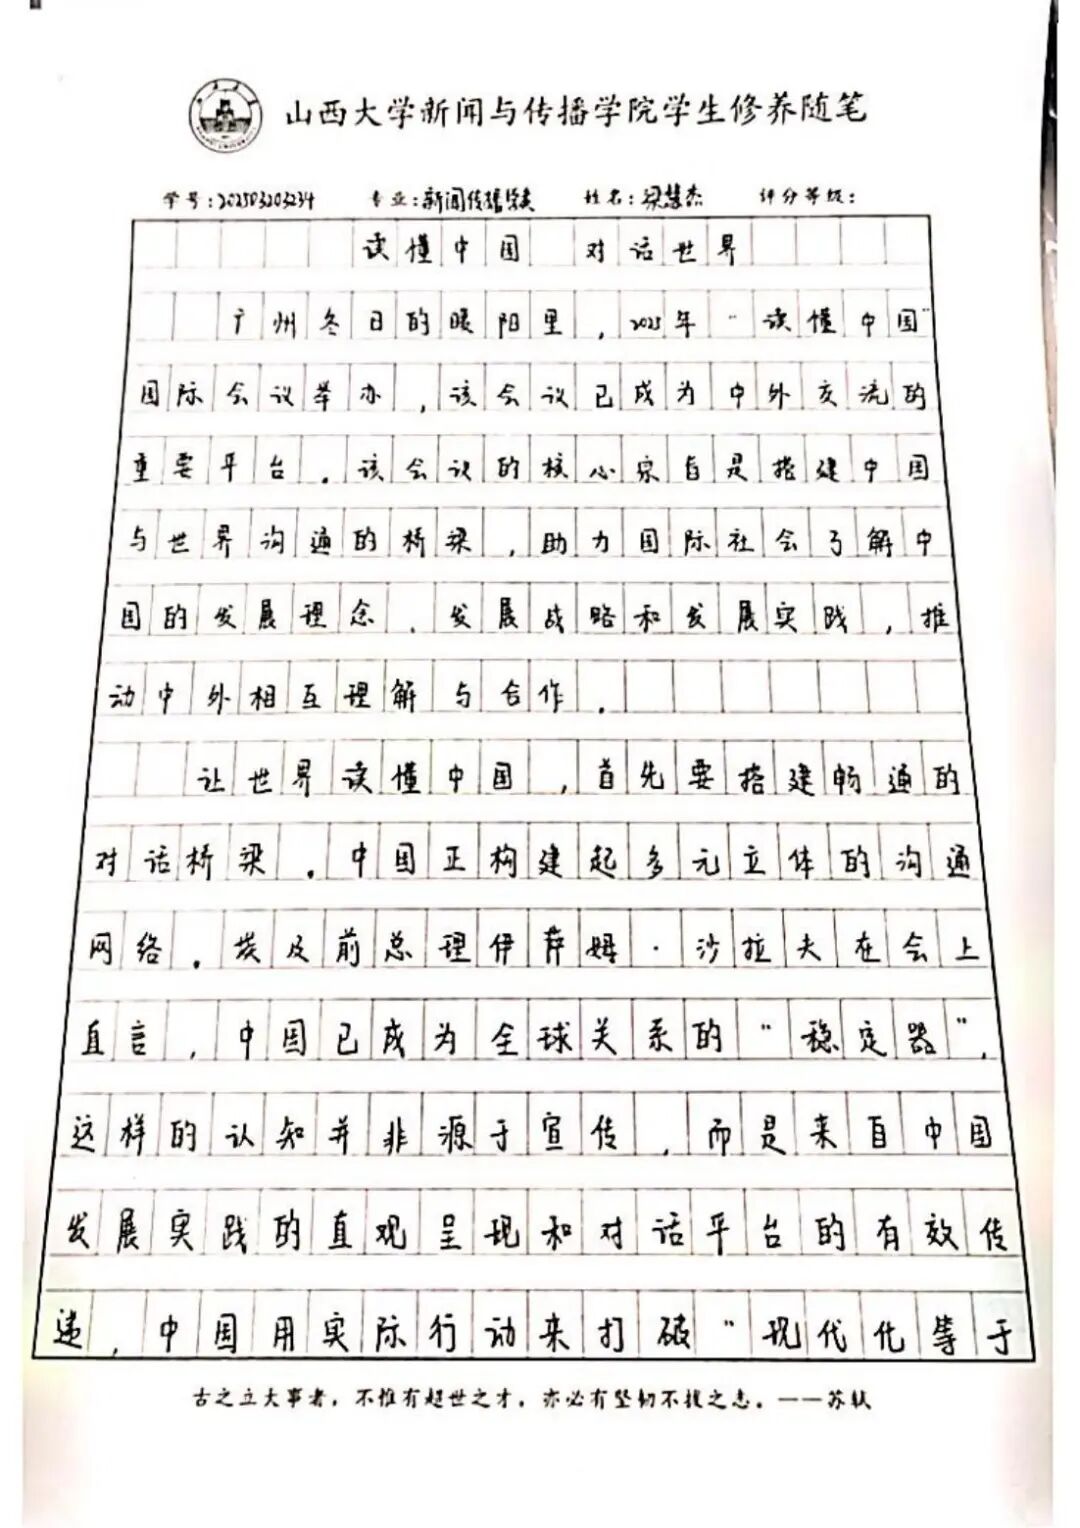 山西大学新闻与传播学院学生修养随笔
学号:202503203234 专业:新闻传播学类 姓名:梁慧杰 评分等级:
读懂中国 对话世界
广州冬日的暖阳里，2025年“读懂中国”
国际会议举办，该会议已成为中外交流的
重要平台。该会议的核心宗旨是搭建中国
与世界沟通的桥梁，助力国际社会了解中
国的发展理念、发展战略和发展实践，推
动中外相互理解与合作。
让世界读懂中国，首先要搭建畅通的
对话桥梁。中国正构建起多元立体的沟通
网络。埃及前总理伊萨姆·沙拉夫在会上
直言，中国已成为全球关系的“稳定器”，
这样的认知并非源于宣传，而是来自中国
发展实践的直观呈现和对话平台的有效传
递，中国用实际行动来打破“现代化等于
古之立大事者，不惟有超世之才，亦必有坚韧不拔之志。——苏轼